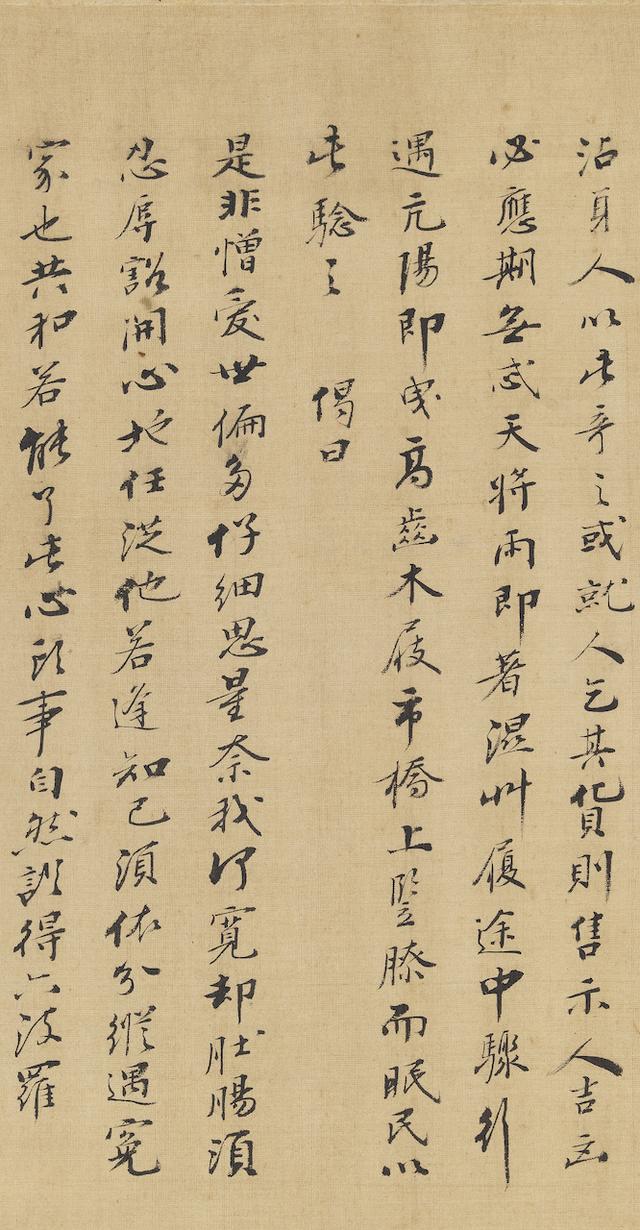 沾身人以此奇之或就人乞其貨則售示人吉凶
必應期無忒天將雨即著濕艸履途中驟行
遇亢陽即曳高齒木屐市橋上豎膝而眠民以
此驗之 偈曰
是非憎愛世偏多仔細思量奈我何寬却肚腸須
忍辱豁開心地任從他若逢知己須依分縱遇冤
家也共和若能了此心頭事自然證得六波羅